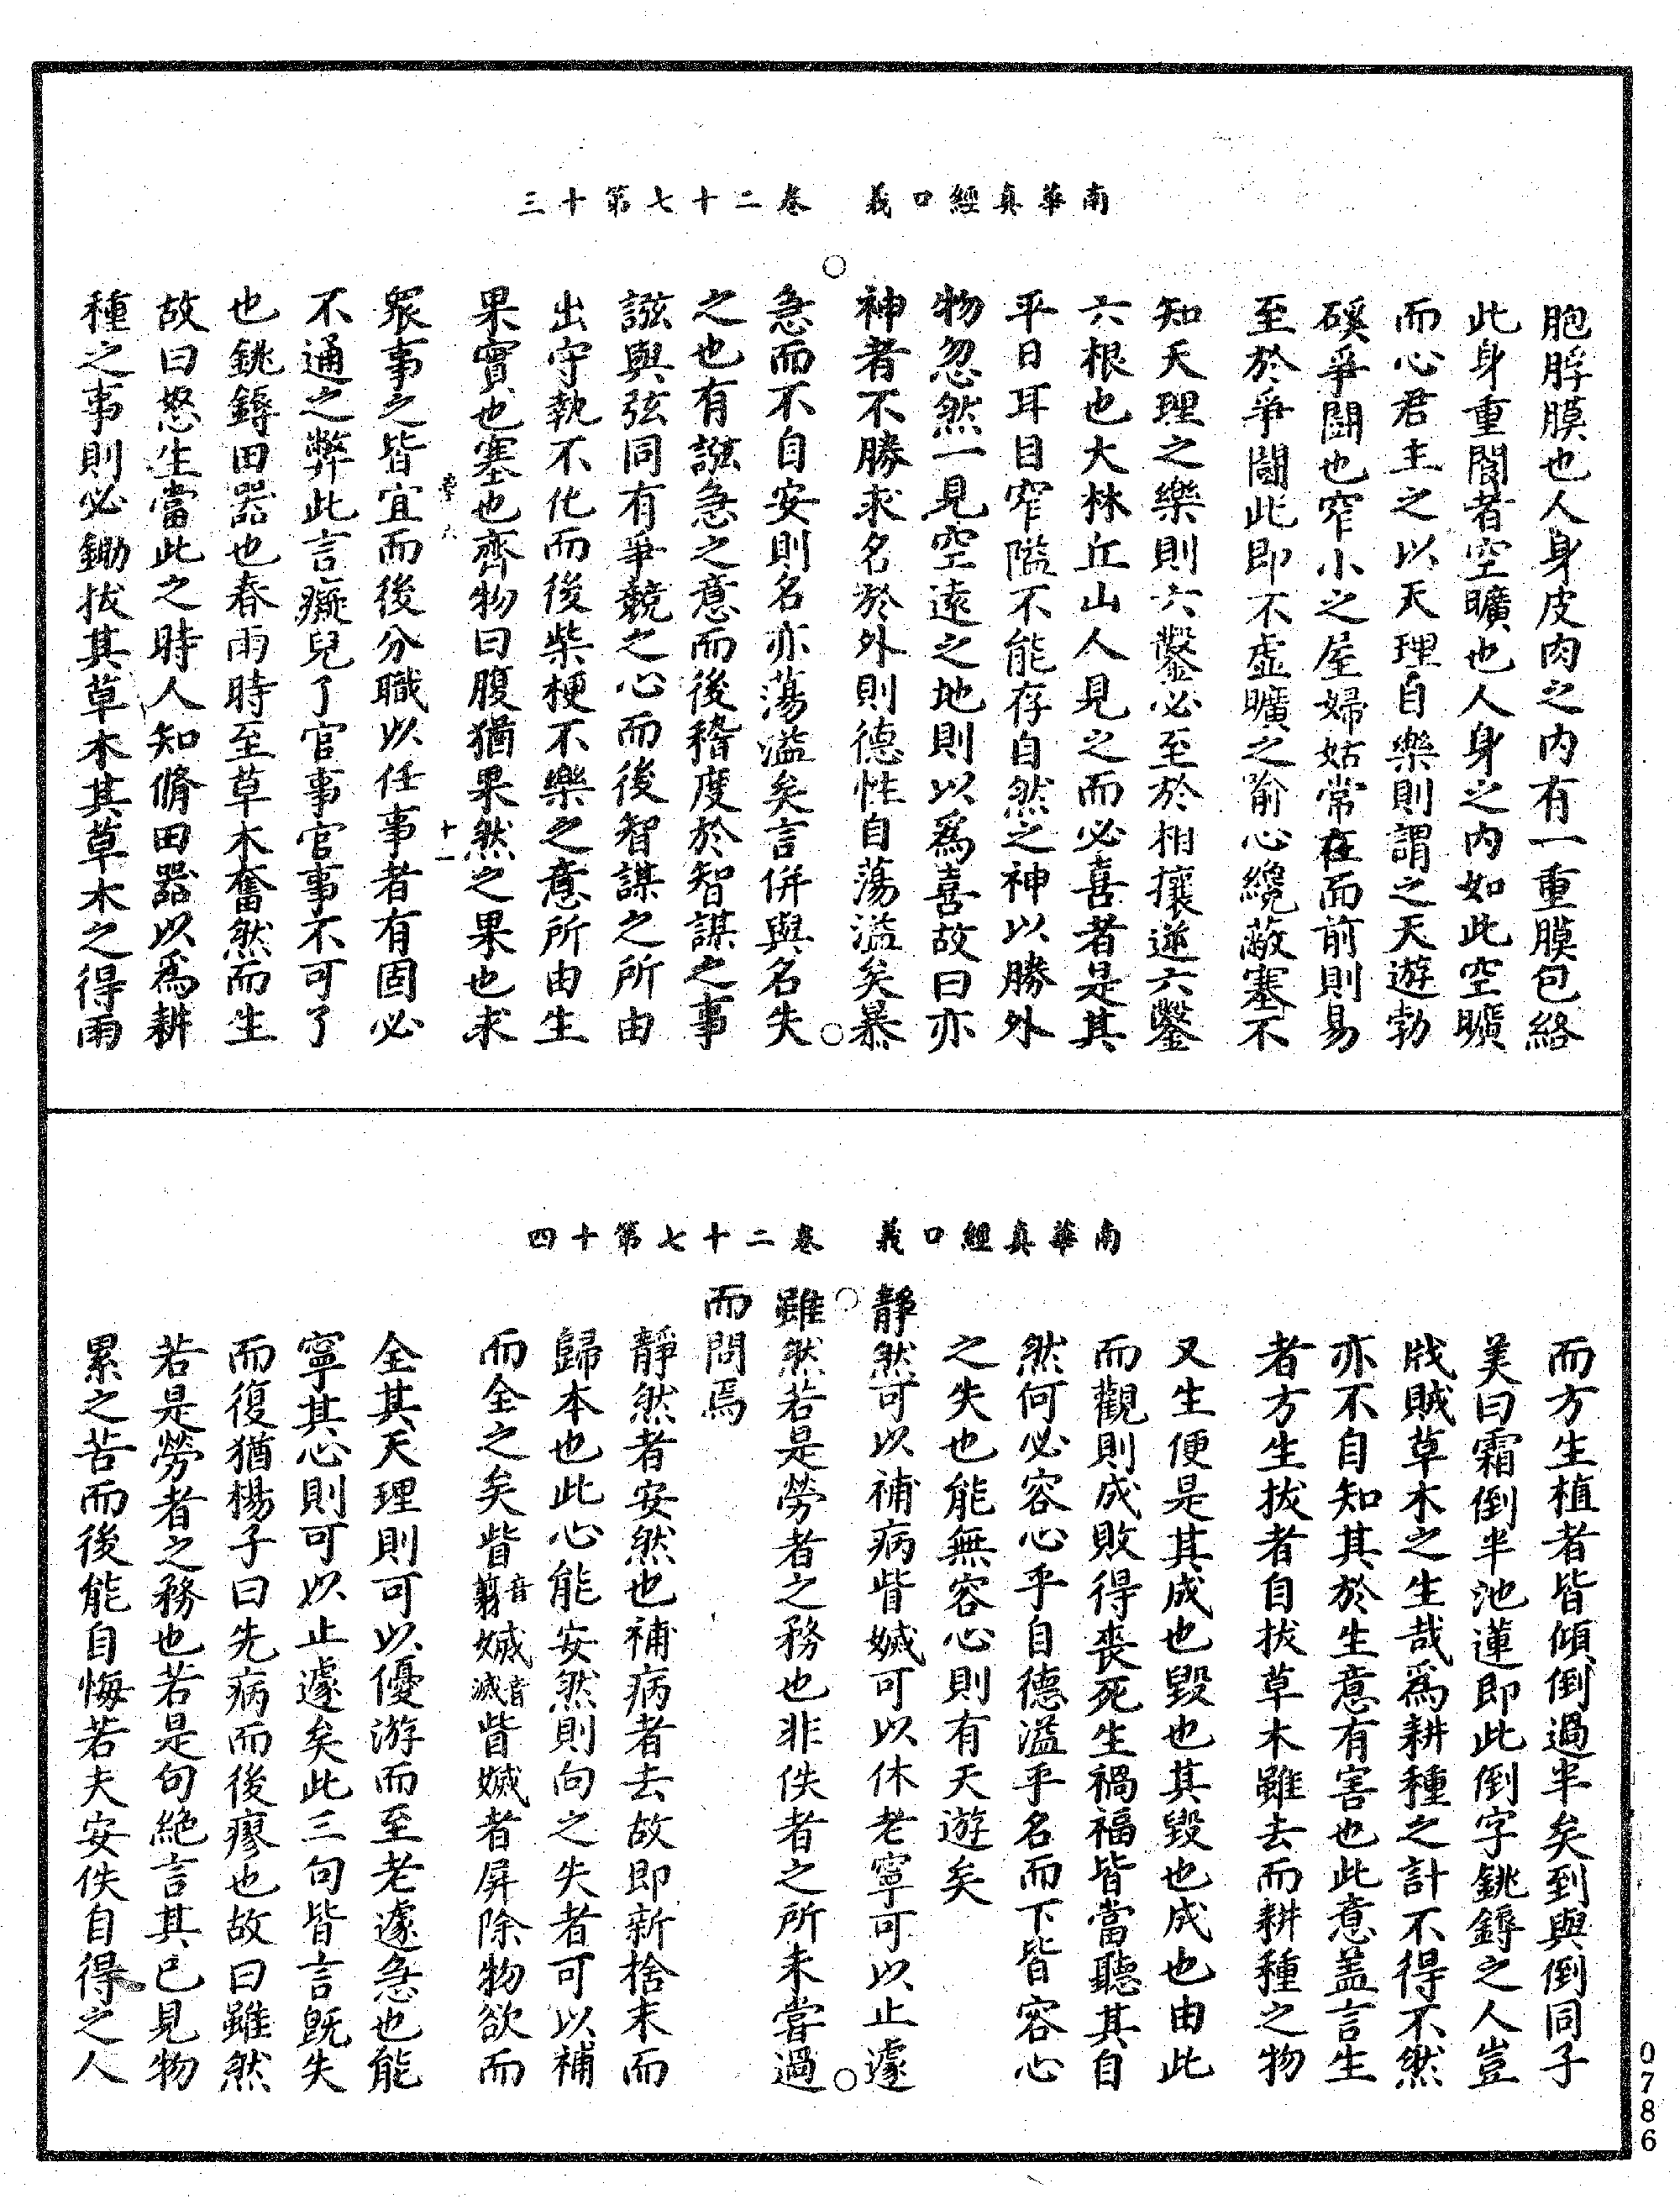 南華真經口義　卷二十七第十三
胞脬膜也人身皮肉之內有一重膜包絡
此身重閬者空曠也人身之內如此空曠
而心君主之以天理自樂則謂之天遊勃
磎爭鬪也窄小之屋婦姑常在面前則易
至於爭鬪此即不虛曠之喻心纔蔽塞不
知天理之樂則六鑿必至於相攘逆六鑿
六根也大林丘山人見之而必喜者是其
平日耳目窄隘不能存自然之神以勝外
物忽然一見空遠之地則以為喜故曰亦
神者不勝求名於外則德性自蕩溢矣暴
急而不自安則名亦蕩溢矣言併與名失
之也有誸急之意而後稽度於智謀之事
誸與弦同有爭競之心而後智謀之所由
出守執不化而後柴梗不樂之意所由生
果實也塞也齊物曰腹猶果然之果也求
十一
眾事之皆宜而後分職以任事者有固必
不通之弊此言癡兒了官事官事不可了
也銚鎒田器也春雨時至草木奮然而生
故曰怒生當此之時人知脩田器以為耕
種之事則必鋤拔其草木其草木之得雨
南華真經口義　卷二十七第十四
而方生植者皆傾倒過半矣到與倒同子
美曰霜倒半池蓮即此倒字銚鎒之人豈
戕賊草木之生哉為耕種之計不得不然
亦不自知其於生意有害也此意盖言生
者方生拔者自拔草木雖去而耕種之物
又生便是其成也毀也其毀也成也由此
而觀則成敗得喪死生禍福皆當聽其自
然何必容心乎自德溢乎名而下皆容心
之失也能無容心則有天遊矣
靜然可以補病眥㛜可以休老寧可以止遽
雖然若是勞者之務也非佚者之所未嘗過
而問焉
靜然者安然也補病者去故即新捨末而
歸本也此心能安然則向之失者可以補
而全之矣眥音翦㛜音滅眥㛜者屏除物欲而
全其天理則可以優游而至老遽急也能
寧其心則可以止遽矣此三句皆言既失
而復猶楊子曰先病而後瘳也故曰雖然
若是勞者之務也若是句絕言其已見物
累之苦而後能自悔若夫安佚自得之人
0786